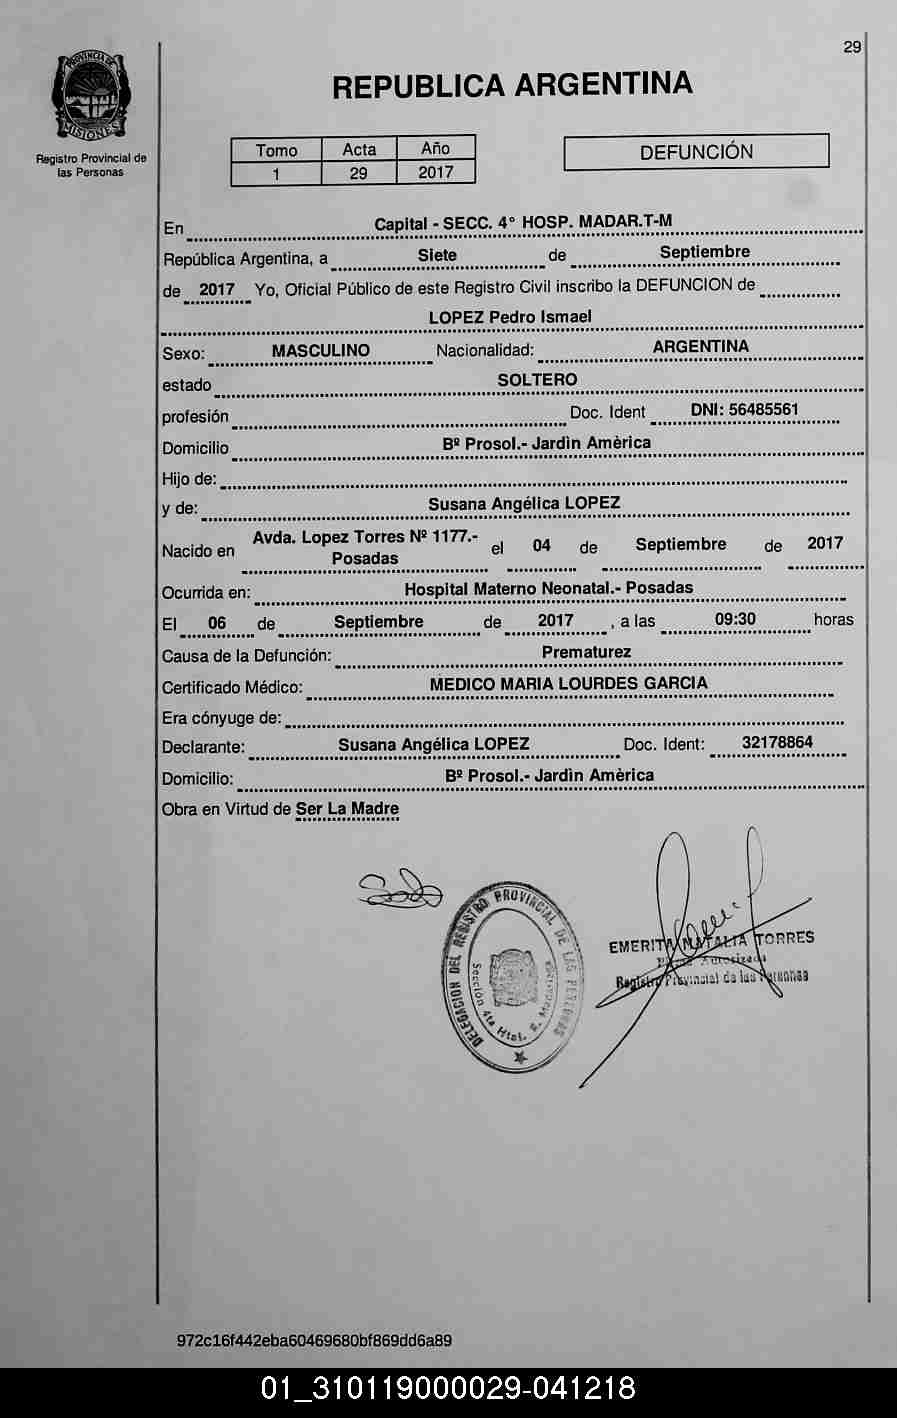 29
PROVINCIA DE
MISIONES
Registro Provincial de
las Personas
REPUBLICA ARGENTINA
Tomo Acta Año
1 29 2017
DEFUNCIÓN
En Capital - SECC. 4° HOSP. MADAR.T-M
República Argentina, a Siete de Septiembre
de 2017 Yo, Oficial Público de este Registro Civil inscribo la DEFUNCION de
LOPEZ Pedro Ismael
Sexo: MASCULINO Nacionalidad: ARGENTINA
estado SOLTERO
profesión Doc. Ident DNI: 56485561
Domicilio Bº Prosol.- Jardìn Amèrica
Hijo de:
y de: Susana Angélica LOPEZ
Avda. Lopez Torres Nº 1177.-
Nacido en Posadas el 04 de Septiembre de 2017
Ocurrida en: Hospital Materno Neonatal.- Posadas
El 06 de Septiembre de 2017 , a las 09:30 horas
Causa de la Defunción: Prematurez
Certificado Médico: MEDICO MARIA LOURDES GARCIA
Era cónyuge de:
Declarante: Susana Angélica LOPEZ Doc. Ident: 32178864
Domicilio: Bº Prosol.- Jardìn Amèrica
Obra en Virtud de Ser La Madre
DELEGACION DEL REGISTRO PROVINCIAL DE LAS PERSONAS
Sección 4ta Htal. R. Madariaga
EMERITA NATALIA TORRES
Firma Autorizada
Registro Provincial de las Personas
972c16f442eba60469680bf869dd6a89
01_310119000029-041218